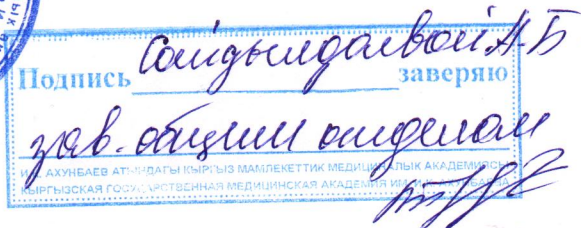 Подпись Сайдылдаевой А.Б заверяю
зав. общим отделом
И.К. АХУНБАЕВ АТЫНДАГЫ КЫРГЫЗ МАМЛЕКЕТТИК МЕДИЦИНАЛЫК АКАДЕМИЯСЫ
КЫРГЫЗСКАЯ ГОСУДАРСТВЕННАЯ МЕДИЦИНСКАЯ АКАДЕМИЯ ИМ. И.К. АХУНБАЕВА